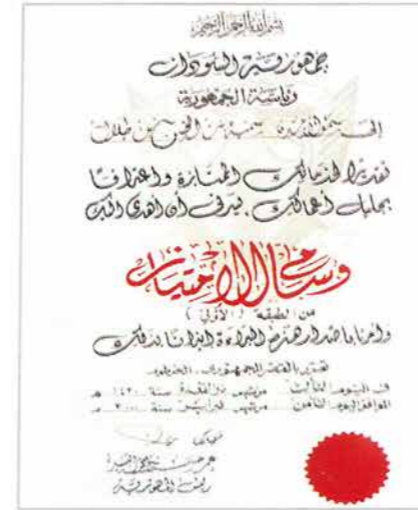 بسم الله الرحمن الرحيم
جمهورية السودان
رئاسة الجمهورية
إلى سمو الأميرة سمية بنت الحسن بن طلال
تقديراً لخدماتك الممتازة واعترافاً
بجليل أعمالك يسرني أن أهدي إليك
وسام الامتياز
من الطبقة (الأولى)
وأمرنا بإصدار هذه البراءة إيذاناً بذلك
تحريراً بالقصر الجمهوري، الخرطوم
في اليوم الثالث من شهر ذو القعدة سنة ١٤٢٠ هـ
الموافق اليوم الثامن من شهر فبراير سنة ٢٠٠٠ م
عمر حسن
رئيس الجمهورية